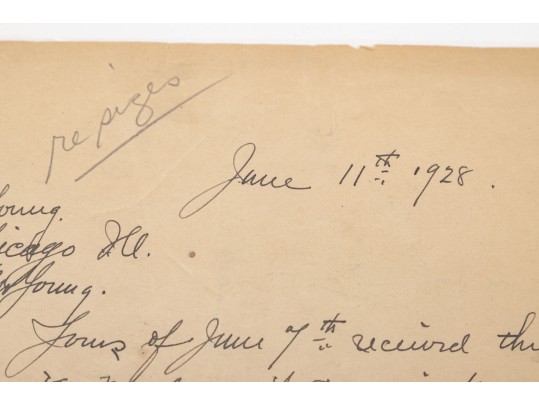 re pizes
June 11th 1928.
Young.
icago Ill.
Young.
Yours of June 7th received th